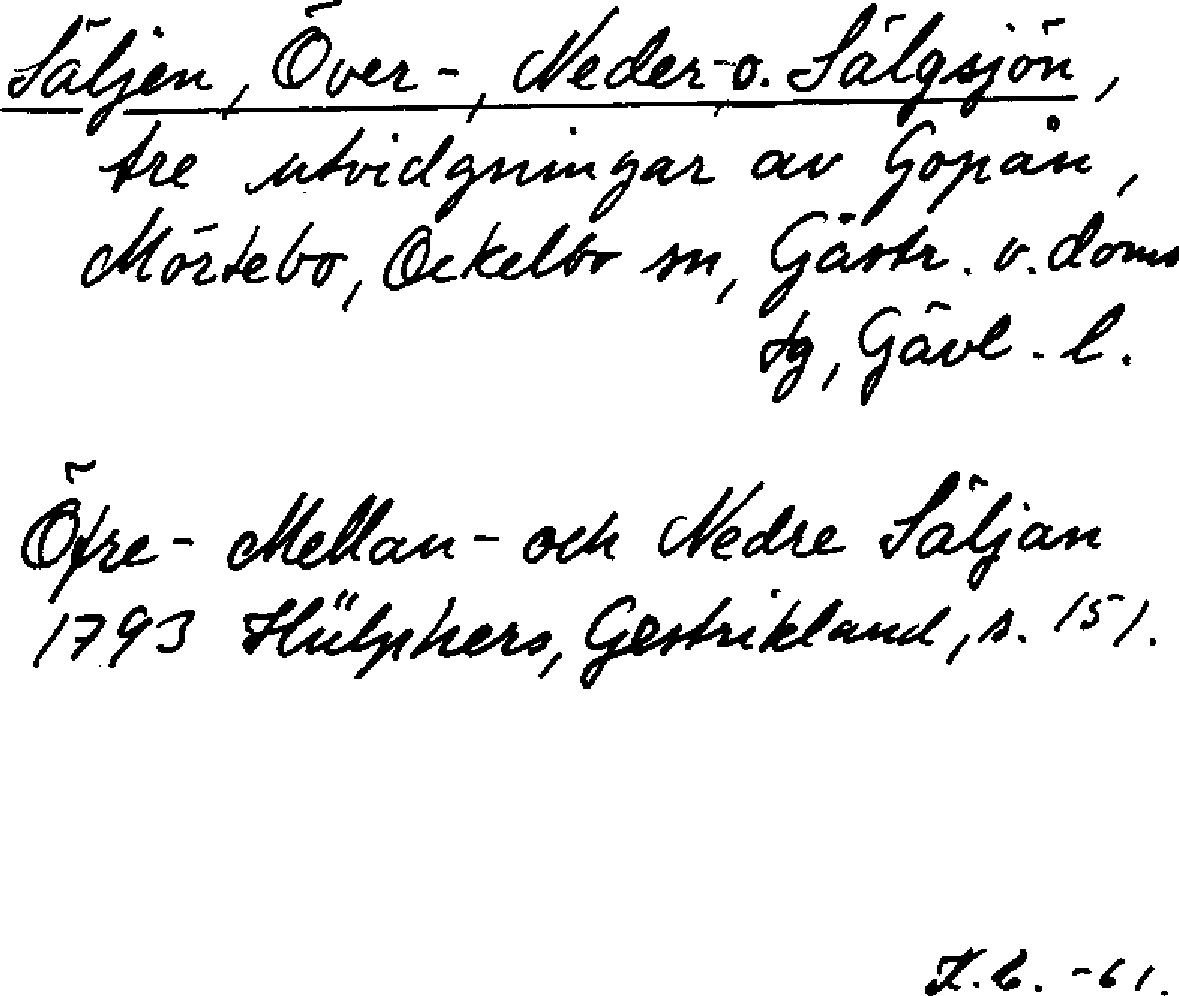 Säljen, Över-, Neder- o. Sälgsjön,
tre utvidgningar av Gopån,
Mörtebo, Ockelbo sn, Gästr. v. doms
tg, Gävl. l.
Öfre- Mellan- och Nedre Säljan
1793 Hülphers, Gestrikland, s. 151.
K.b. -61.